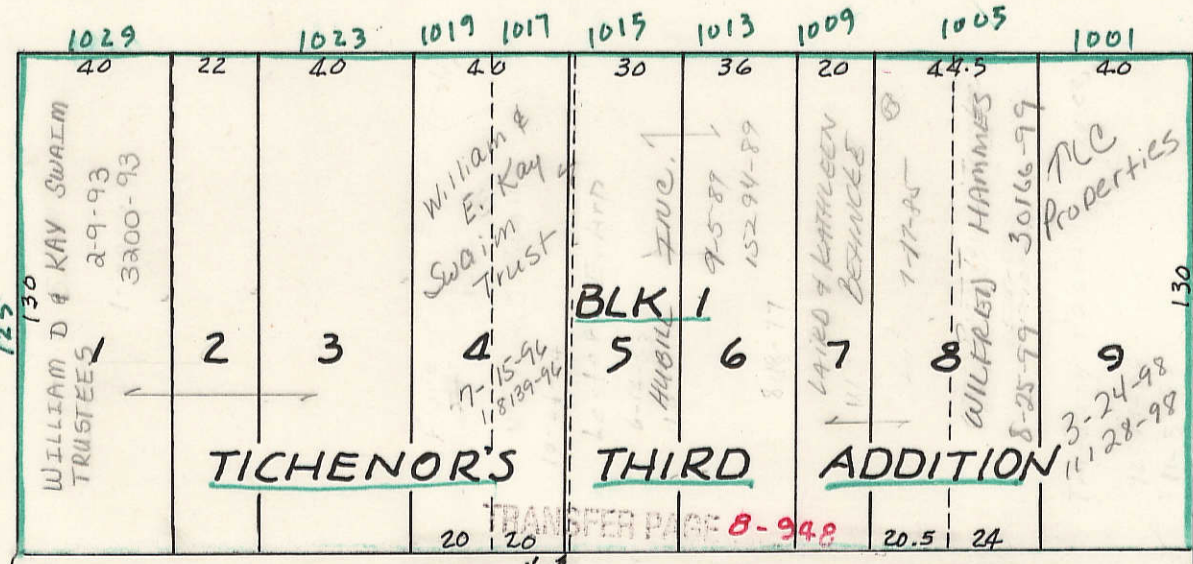 1029 1023 1019 1017 1015 1013 1009 1005 1001
40 22 40 40 30 36 20 44.5 40
WILLIAM D & KAY SWAIM
TRUSTEES
2-9-93
3200-93
William &
E. Kay
Swaim
Trust
7-15-96
18139-96
HUBILL INC.
9-5-89
15294-89
LAIRD & KATHLEEN
WILFRED T HAMMES
8-25-99 30166-99
TLC
Properties
3-24-98
11,128-98
125
130
130
BLK 1
1 2 3 4 5 6 7 8 9
TICHENOR'S THIRD ADDITION
TRANSFER PAGE 8-948
20 20 20.5 24